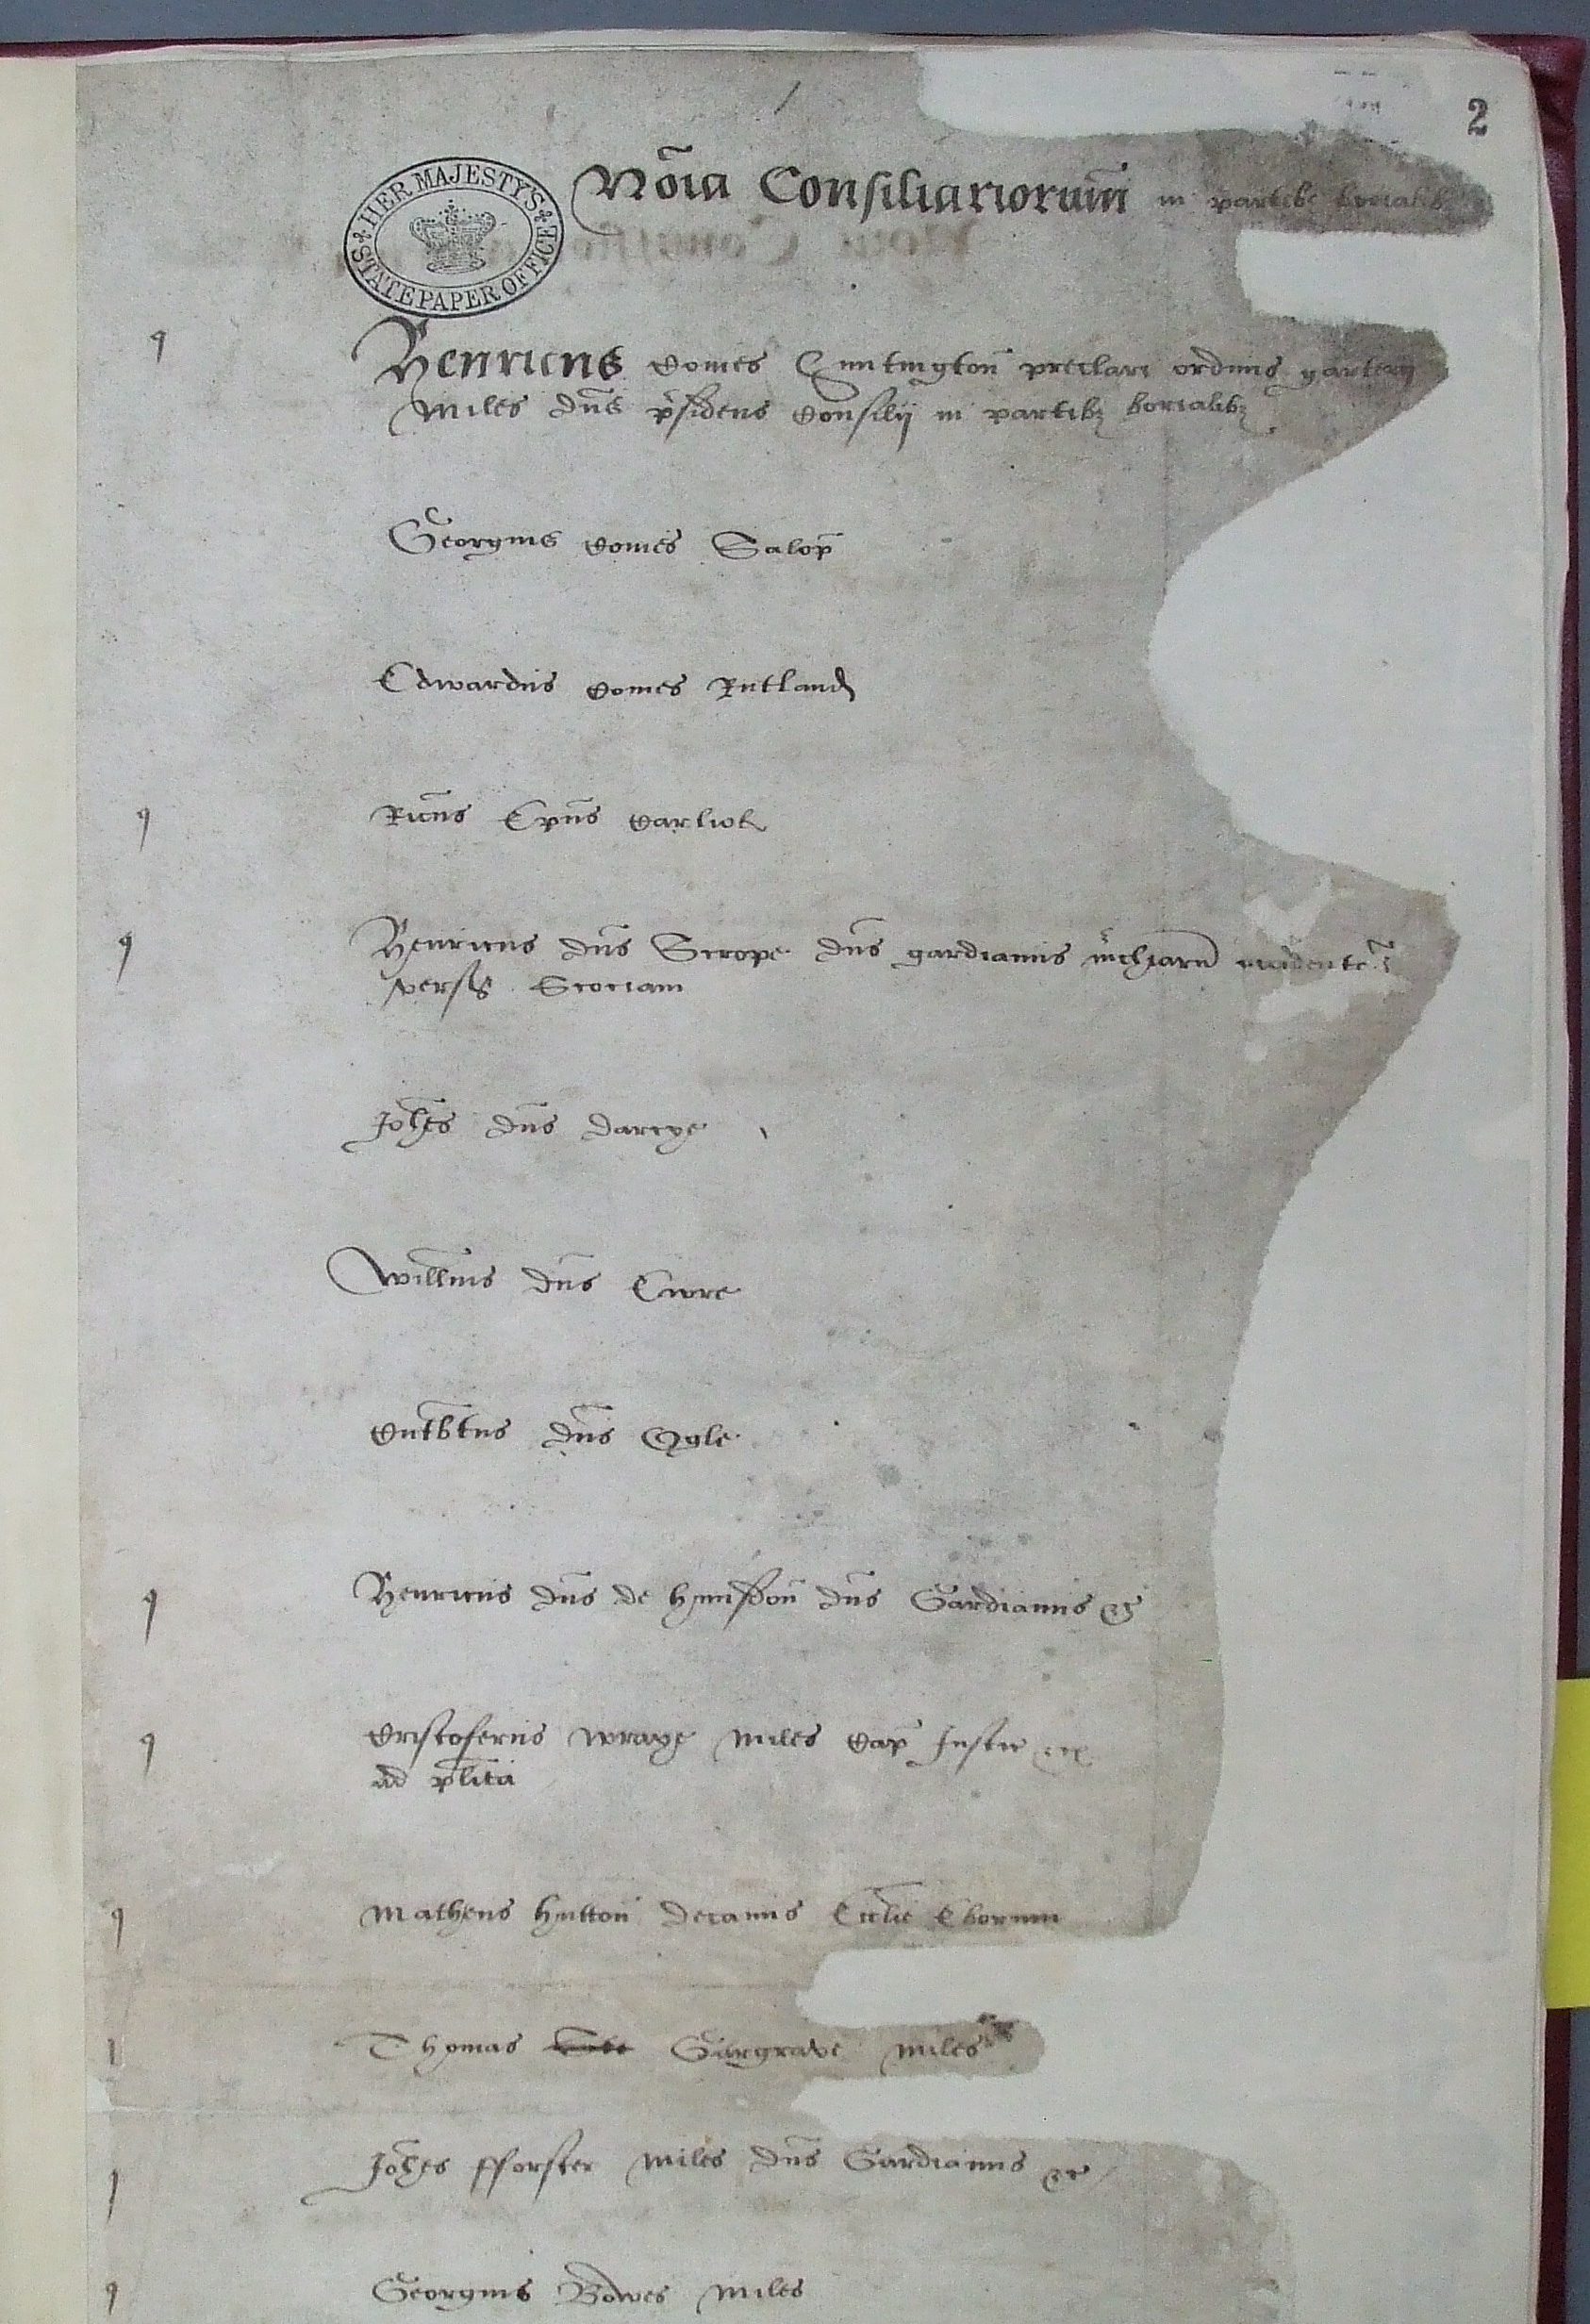 2
HER MAJESTY'S STATE PAPER OFFICE
Nōia Consiliariorum in partibȝ borialibȝ
Henricus Comes Huntingtoñ preclari ordinis garterij
Miles dñs p̃sidens Consilij in partibȝ borialibȝ
Georgius Comes Salop̃
Edwardus Comes Rutland
Ricũs Ep̃us Carliol
Henricus dñs Scrope dñs gardianus m̃chiarũ
versus Scociam
Joh̃es dñs darcye
Will̃mus dñs Ewre
Cutb̃tus dñs Ogle
Henricus dñs de hunsdoñ dñs Gardianus &c
Cristoferus wraye Miles Cap̃ Justic
ad pl̃ita
Matheus huttoñ decanus Eccl̃ie Eborum
Thomas Gargrave miles
Joh̃es fforster Miles dñs Gardianus &c
Georgius Bowes Miles